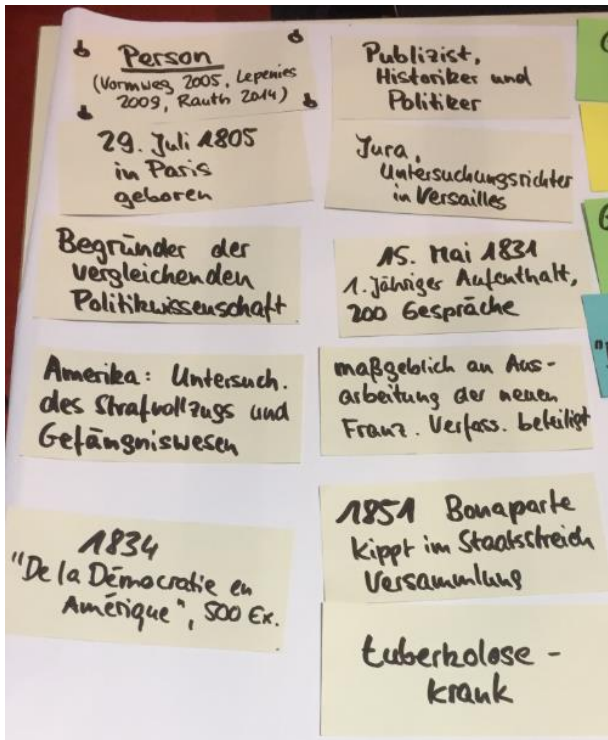 Person
(Vormweg 2005, Lepenies
2009, Rauth 2014)
29. Juli 1805
in Paris
geboren
Begründer der
vergleichenden
Politikwissenschaft
Amerika: Untersuch.
des Strafvollzugs und
Gefängniswesen
1834
"De la Démocratie en
Amérique", 500 Ex.
Publizist,
Historiker und
Politiker
Jura,
Untersuchungsrichter
in Versailles
15. Mai 1831
1. Jähriger Aufenthalt,
200 Gespräche
maßgeblich an Aus-
arbeitung der neuen
Franz. Verfass. beteiligt
1851 Bonaparte
kippt im Staatsstreich
Versammlung
tuberkolose-
krank